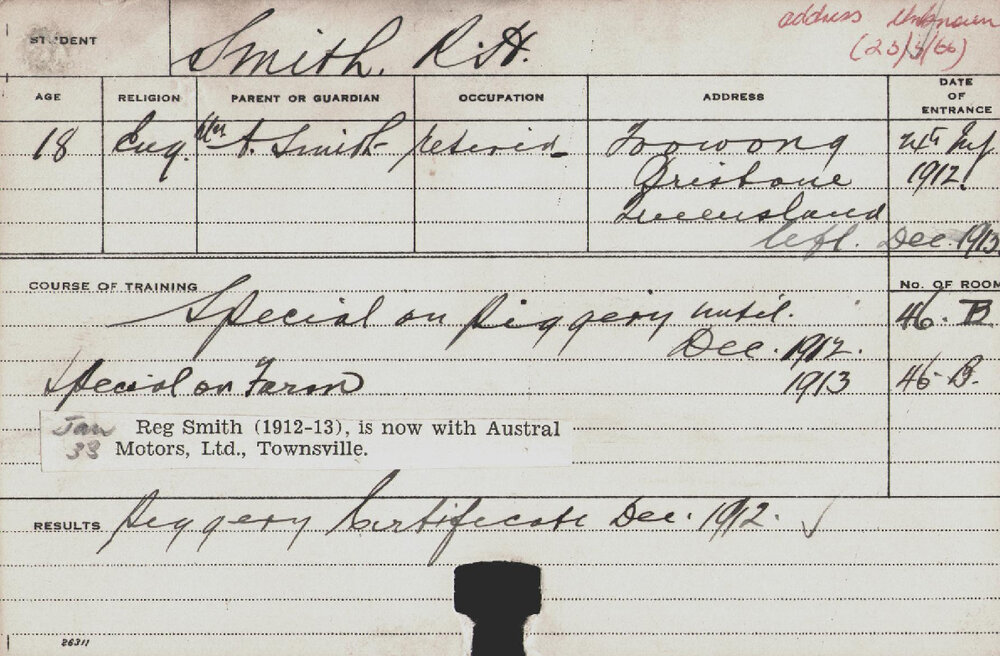 STUDENT Smith. R. H.
address unknown
(23/5/66)
AGE RELIGION PARENT OR GUARDIAN OCCUPATION ADDRESS DATE OF ENTRANCE
18 Eng. A. Smith retired Toowong
Brisbane 1912.
Queensland
left. Dec. 1913.
COURSE OF TRAINING No. OF ROOM
Special on Piggery until. 46. B.
Dec. 1912.
Special on Farm 1913 46 B.
Jan Reg Smith (1912-13), is now with Austral
33 Motors, Ltd., Townsville.
RESULTS Piggery Certificate Dec. 1912.
26311